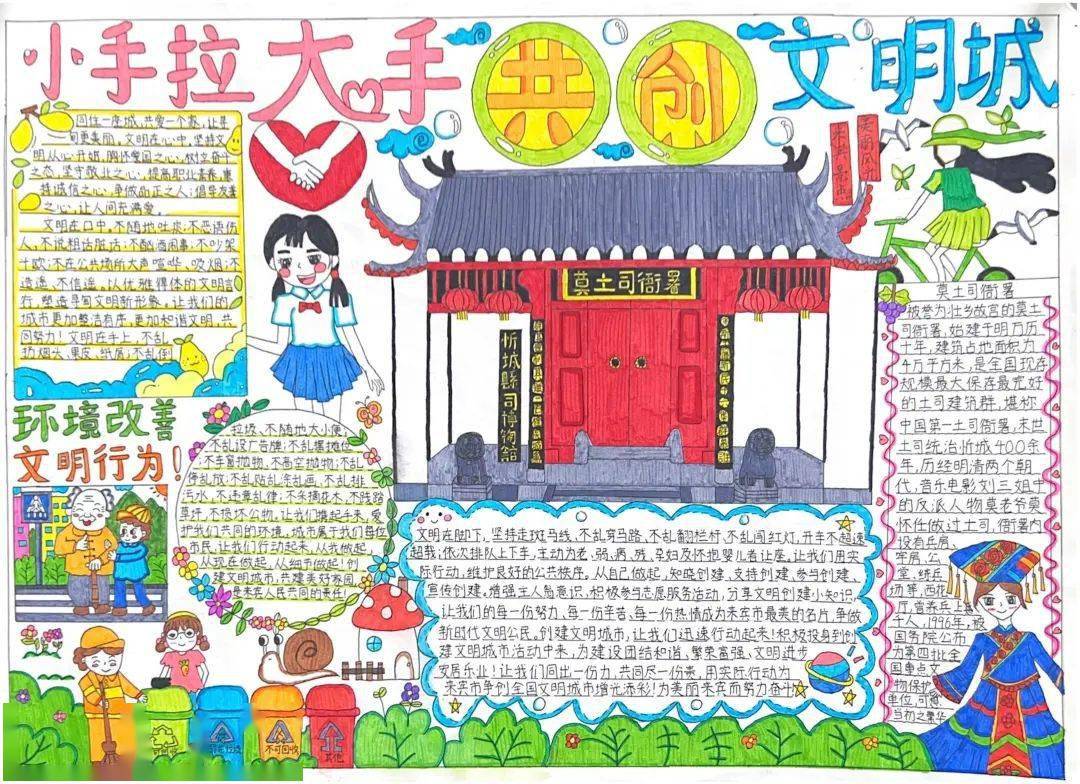 小手拉大手共创文明城
同住一座城，共爱一个家，让其
间更美丽。文明在心中，坚持文
明从心开始，胸怀爱国之心；树立奋斗
之态，坚守敬业之心；提高职业素养，秉
持诚信之心；争做品正之人；倡导友善
之心，让人间充满爱。
文明在口中。不随地吐痰；不恶语伤
人，不说粗话脏话；不酗酒闹事；不吵架
斗殴；不在公共场所大声喧哗、吸烟；不
造谣，不信谣。以优雅得体的文明言
行，塑造寻国文明新形象，让我们的
城市更加整洁有序，更加和谐文明，共
同努力！文明在手上，不乱
扔烟头、果皮、纸屑；不乱倒
环境改善
文明行为！
垃圾、不随地大小便；
不乱设广告牌；不乱摆摊位
；不高空抛物；不乱
停乱放；不乱贴乱涂乱画，不乱排
污水，不违章乱建；不采摘花木，不践踏
草坪，不损坏公物。让我们携起手来，爱
护我们共同的环境，城市属于我们每位
市民，让我们行动起来，从我做起，
从现在做起，从细节做起！创
建文明城市，共建美好家园，
是来宾人民共同的责任！
莫土司衙署
忻城縣土司博物館
文明在脚下，坚持走斑马线，不乱穿马路、不乱翻栏杆，不乱闯红灯，开车不超速
超载；依次排队上下车，主动为老、弱、病、残、孕妇及怀抱婴儿者让座，让我们用实
际行动，维护良好的公共秩序。从自己做起，知晓创建、支持创建、参与创建、
宣传创建。增强主人翁意识，积极参与志愿服务活动，分享文明创建小知识，
让我们的每一份努力、每一份辛苦、每一份热情成为来宾市最美的名片，争做
新时代文明公民。创建文明城市，让我们迅速行动起来！积极投身到创
建文明城市活动中来，为建设团结和谐，繁荣富强、文明进步
安居乐业！让我们同出一份力，共同尽一份责，用实际行动为
来宾市争创全国文明城市增光添彩！为美丽来宾而努力奋斗
莫土司衙署
被誉为壮乡故宫的莫土
司衙署，始建于明万历
十年，建筑占地面积为
4万平方米，是全国现存
规模最大保存最完好
的土司建筑群，堪称
中国第一土司衙署，末世
土司统治忻城400余
年，历经明清两个朝
代，音乐电影刘三姐中
的反派人物莫老爷莫
怀仁做过土司，衙署内
设有兵房、
牢房、公
堂、练兵
场等，西花
厅，曾养兵上
千人，1996年，被
国务院公布
为第四批全
国重点文
物保护
单位，可想
当初之繁华
可回收
不可回收
其他